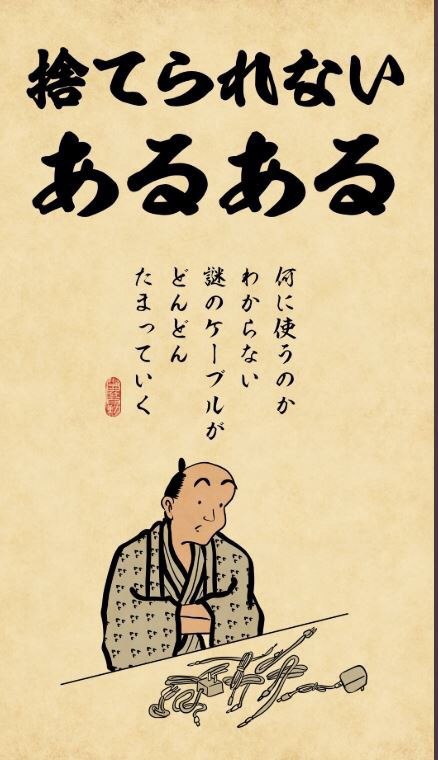 捨てられない
あるある
何に使うのか
わからない
謎のケーブルが
どんどん
たまっていく